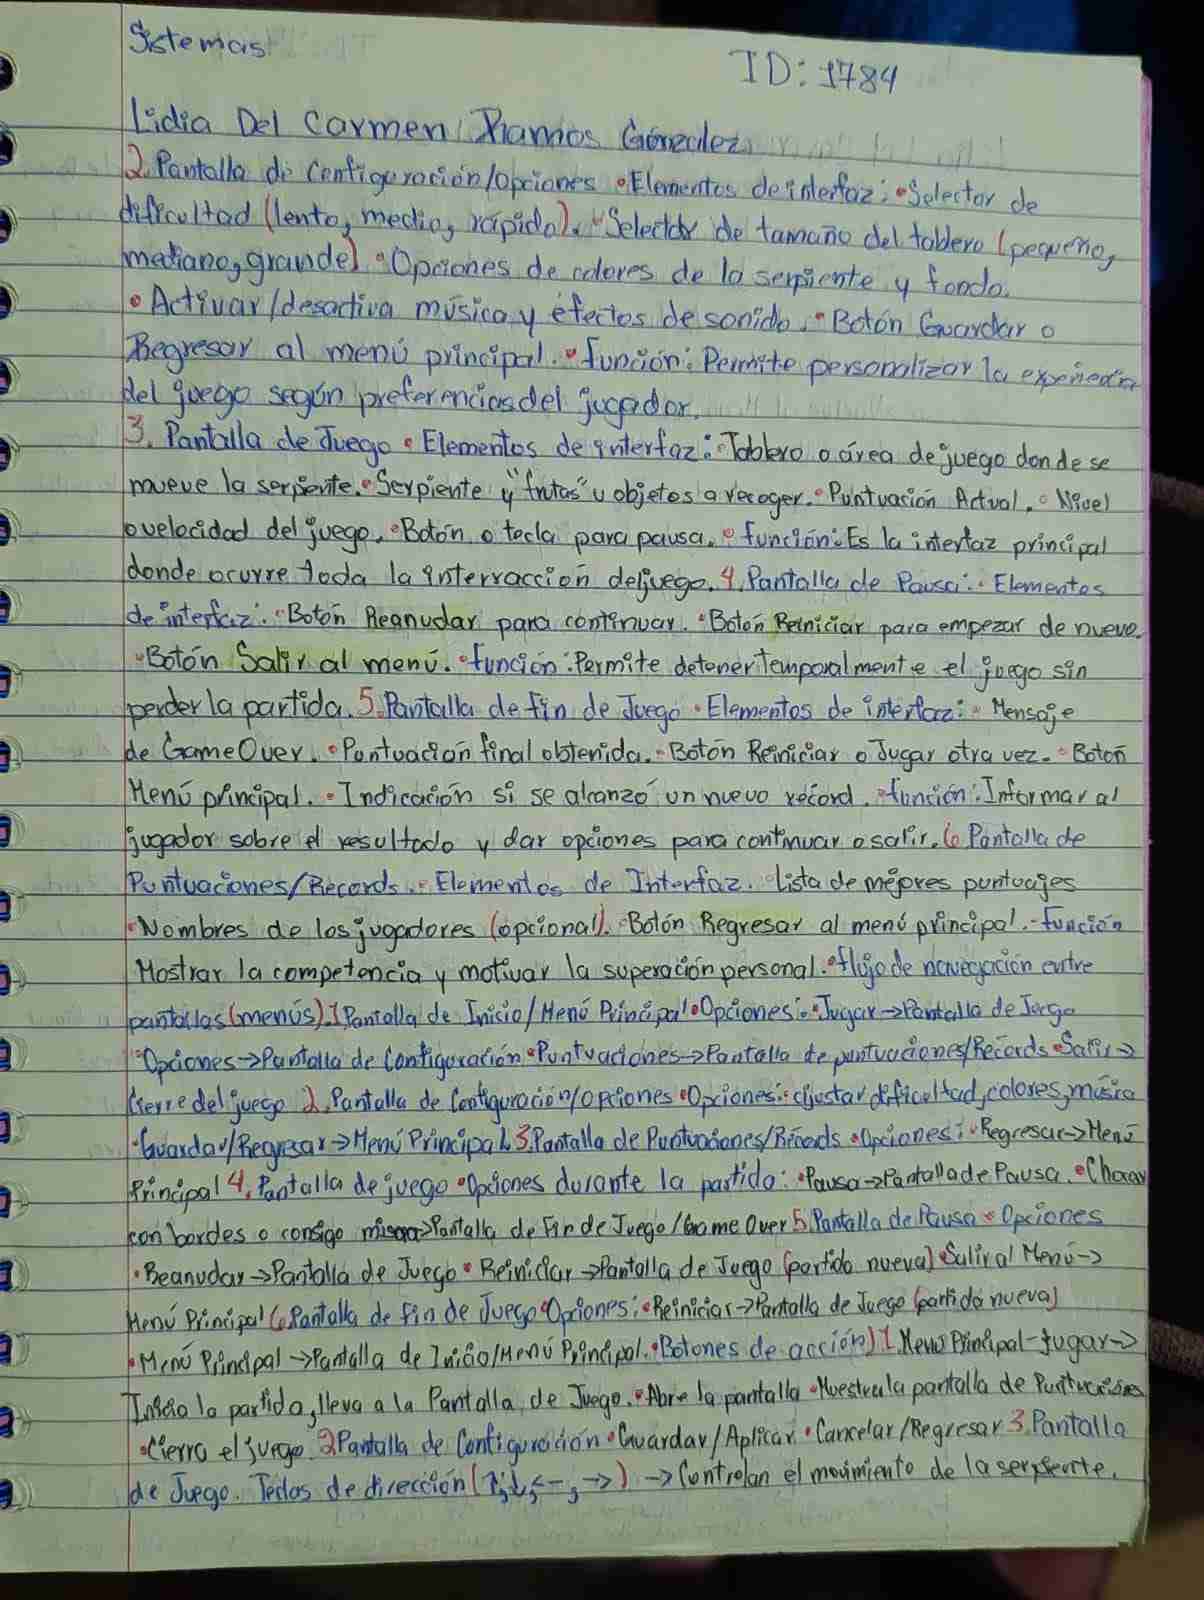 Sistemas
ID: 1784
Lidia Del Carmen Ramos González
2. Pantalla de Configuración/opciones •Elementos de interfaz: •Selector de
dificultad (lento, medio, rápido). •Selector de tamaño del tablero (pequeño,
mediano, grande) •Opciones de colores de la serpiente y fondo.
•Activar/desactiva música y efectos de sonido. •Botón Guardar o
Regresar al menú principal. •función: Permite personalizar la experiencia
del juego según preferencias del jugador.
3. Pantalla de Juego •Elementos de interfaz: •Tablero o área de juego donde se
mueve la serpiente. •Serpiente y "frutas" u objetos a recoger. •Puntuación Actual. •Nivel
o velocidad del juego. •Botón o tecla para pausa. •función: Es la interfaz principal
donde ocurre toda la interraccion del juego. 4. Pantalla de Pausa: •Elementos
de interfaz: •Botón Reanudar para continuar. •Botón Reiniciar para empezar de nuevo.
•Botón Salir al menú. •función: Permite detener Temporalmente el juego sin
perder la partida. 5. Pantalla de fin de Juego •Elementos de interfaz: •Mensaje
de Game Over. •Puntuación final obtenida. •Botón Reiniciar o Jugar otra vez. •Botón
Menú principal. •Indicación si se alcanzó un nuevo récord. •función: Informar al
jugador sobre el resultado y dar opciones para continuar o salir. 6 Pantalla de
Puntuaciones/Records. •Elementos de Interfaz. •Lista de mejores puntuajes
•Nombres de los jugadores (opcional). •Botón Regresar al menú principal. •función
Mostrar la competencia y motivar la superación personal. •flujo de navegación entre
pantallas (menús). 1 Pantalla de Inicio/Menú Principal •Opciones: •Jugar→Pantalla de Juego
•Opciones→Pantalla de Configuración •Puntuaciones→Pantalla de puntuaciones/Récords •Salir→
Cierre del juego 2. Pantalla de Configuración/opciones •Opciones: •Ajustar dificultad, colores, música
•Guardar/Regresar→Menú Principal 3. Pantalla de Puntuaciones/Récords •Opciones: •Regresar→Menú
Principal 4. Pantalla de juego •Opciones durante la partida: •Pausa→Pantalla de Pausa. •Chocar
con bordes o consigo misma→Pantalla de Fin de Juego/Game Over 5. Pantalla de Pausa •Opciones
•Reanudar→Pantalla de Juego •Reiniciar→Pantalla de Juego (partida nueva) •Salir al Menú→
Menú Principal 6 Pantalla de fin de Juego •Opciones: •Reiniciar→Pantalla de Juego (partida nueva)
•Menú Principal→Pantalla de Inicio/Menú Principal. •Botones de acción) 1. Menú Principal-Jugar→
Inicia la partida, lleva a la Pantalla de Juego. •Abre la pantalla •Muestra la pantalla de Puntuaciones
•Cierra el juego. 2 Pantalla de Configuración •Guardar/Aplicar •Cancelar/Regresar 3. Pantalla
de Juego. Teclas de dirección (↑, ↓, ←, →) → Controlan el movimiento de la serpiente.